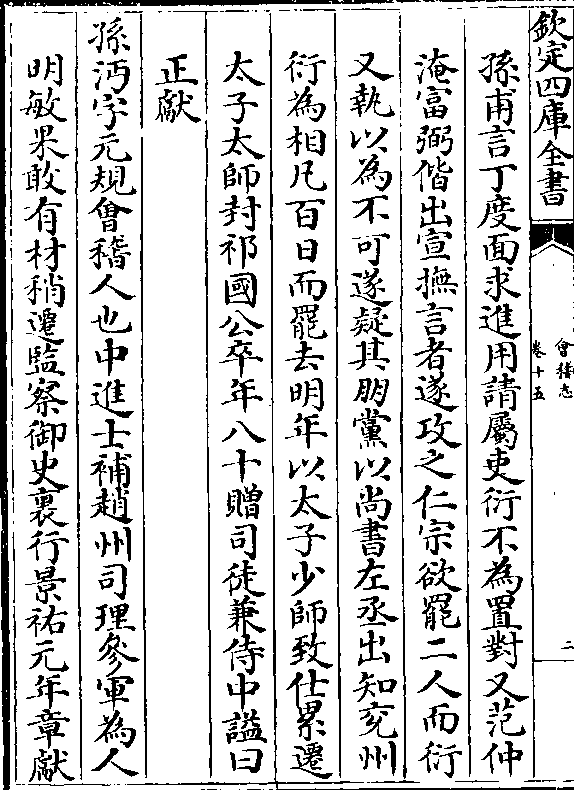 欽定四庫全書
會稽志
卷十五
二
孫甫言丁度面求進用請屬吏衍不為置對又范仲
淹富弼偕出宣撫言者遂攻之仁宗欲罷二人而衍
又執以為不可遂疑其朋黨以尚書左丞出知兖州
衍為相凡百日而罷去明年以太子少師致仕累遷
太子太師封祁國公卒年八十贈司徒兼侍中謚曰
正獻
孫沔字元規會稽人也中進士補趙州司理參軍為人
明敏果敢有材稍遷監察御史裏行景祐元年章獻